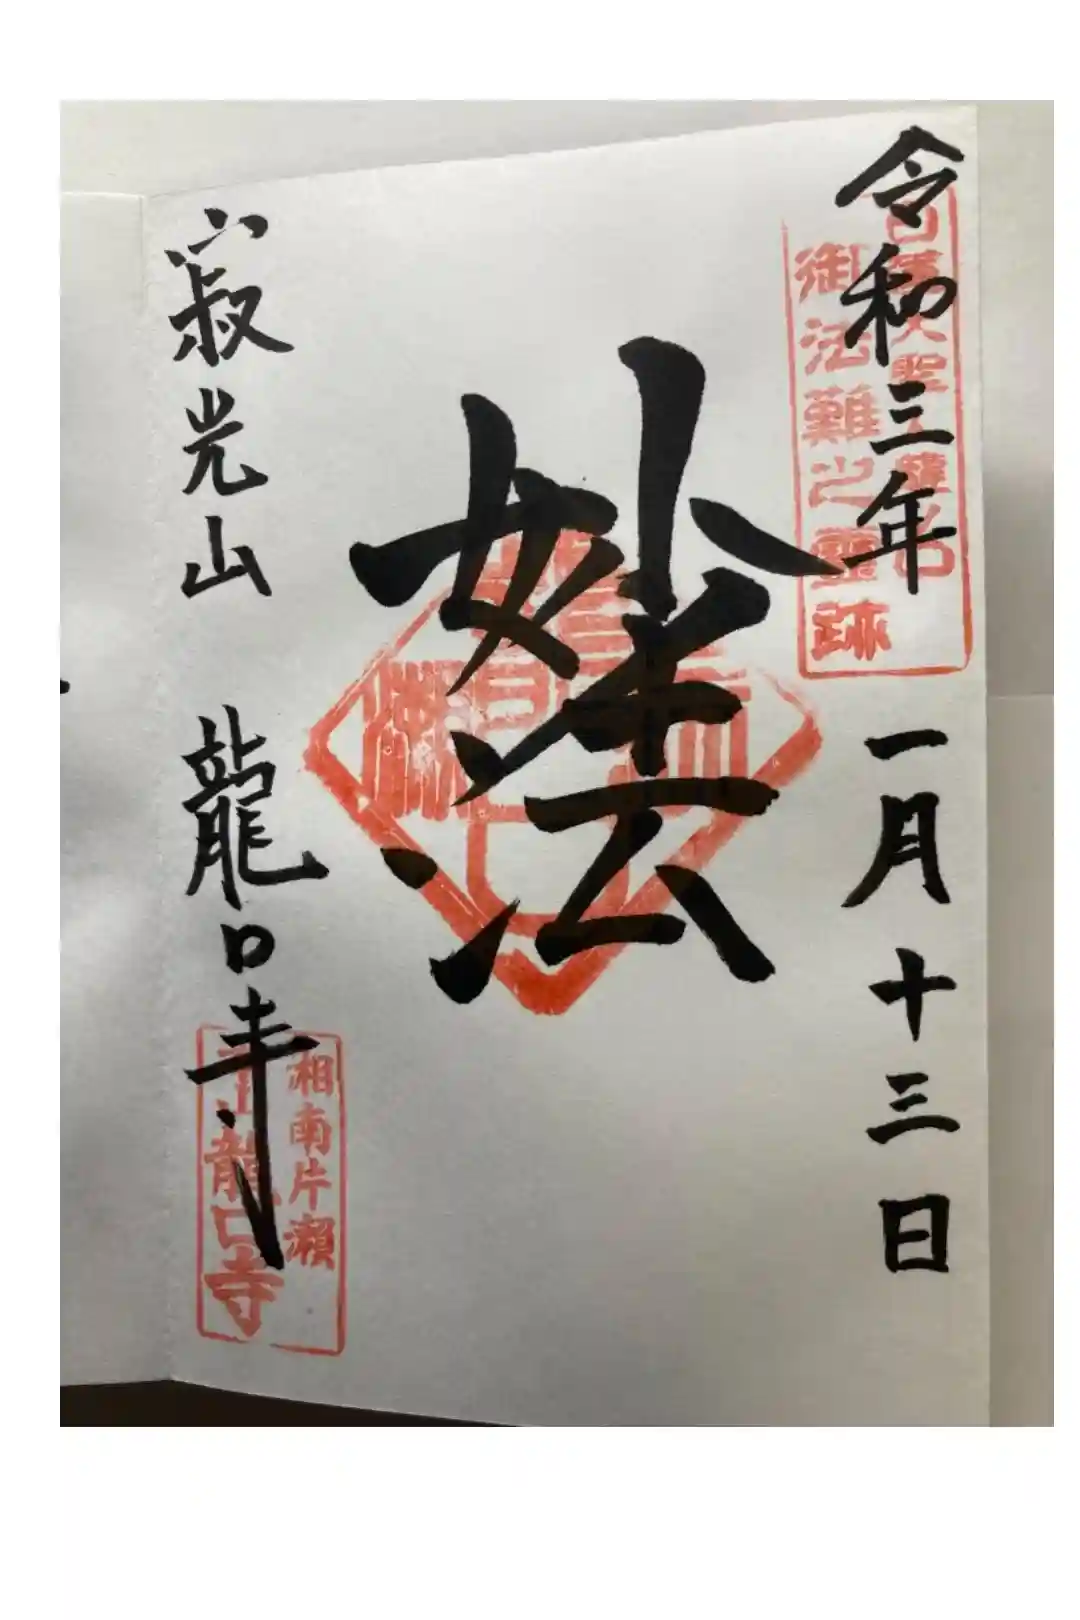 令和三年 一月十三日
御法難之霊跡
妙法
寂光山 龍口寺
湘南片瀬
龍口寺